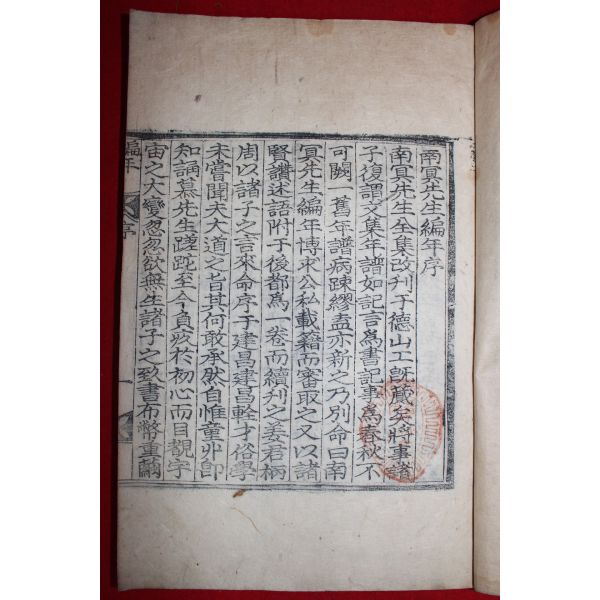 南冥先生編年序
南冥先生全集改刊于德山工旣蕆矣將事諸
子復謂文集年譜如記言爲書記事爲春秋不
可闕一舊年譜病疎繆盍亦新之乃別命曰南
冥先生編年博求公私載籍而審取之又以諸
賢讚述語附于後都爲一卷而續刊之姜君柄
周以諸子之言來命序于建昌建昌輇才俗學
未嘗聞夫大道之旨其何敢承然自惟童丱卽
知誦慕先生蹉跎至今負疚於初心而目覩宇
宙之大變忽忽欲無生諸子之致書布幣重繭
編年
序
一